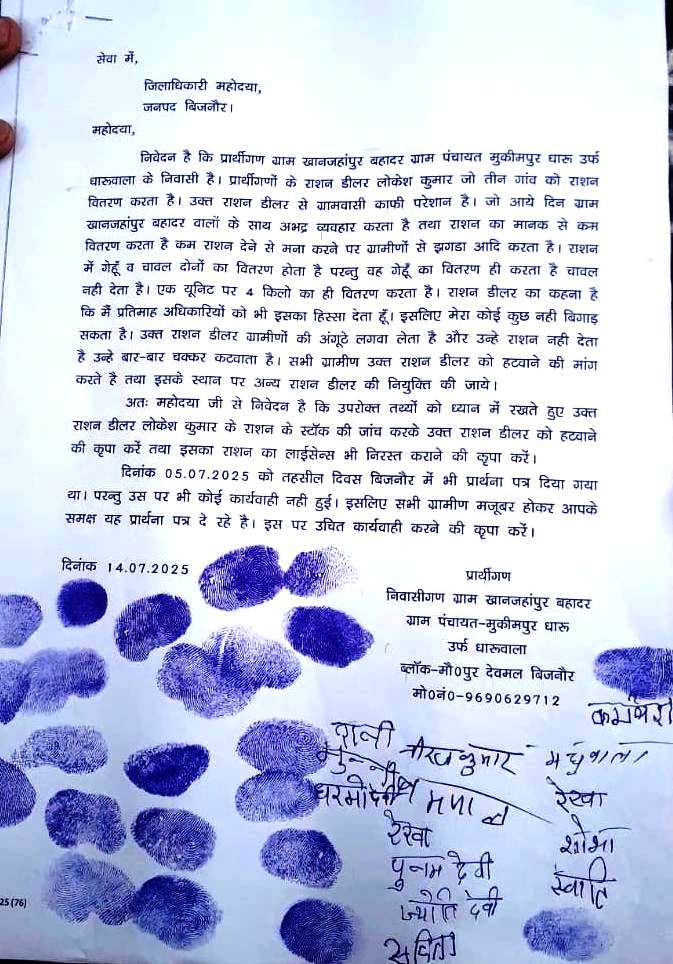 सेवा में,
जिलाधिकारी महोदया,
जनपद बिजनौर।
महोदया,
निवेदन है कि प्रार्थीगण ग्राम खानजहांपुर बहादर ग्राम पंचायत मुकीमपुर धारू उर्फ
धारूवाला के निवासी है। प्रार्थीगणों के राशन डीलर लोकेश कुमार जो तीन गांव को राशन
वितरण करता है। उक्त राशन डीलर से ग्रामवासी काफी परेशान है। जो आये दिन ग्राम
खानजहांपुर बहादर वालों के साथ अभद्र व्यवहार करता है तथा राशन का मानक से कम
वितरण करता है कम राशन देने से मना करने पर ग्रामीणों से झगडा आदि करता है। राशन
में गेहूँ व चावल दोनों का वितरण होता है परन्तु वह गेहूँ का वितरण ही करता है चावल
नही देता है। एक यूनिट पर 4 किलो का ही वितरण करता है। राशन डीलर का कहना है
कि मैं प्रतिमाह अधिकारियों को भी इसका हिस्सा देता हूँ। इसलिए मेरा कोई कुछ नही बिगाड़
सकता है। उक्त राशन डीलर ग्रामीणों की अंगूठे लगवा लेता है और उन्हे राशन नही देता
है उन्हे बार-बार चक्कर कटवाता है। सभी ग्रामीण उक्त राशन डीलर को हटवाने की मांग
करते है तथा इसके स्थान पर अन्य राशन डीलर की नियुक्ति की जाये।
अतः महोदया जी से निवेदन है कि उपरोक्त तथ्यों को ध्यान में रखते हुए उक्त
राशन डीलर लोकेश कुमार के राशन के स्टॉक की जांच करके उक्त राशन डीलर को हटवाने
की कृपा करें तथा इसका राशन का लाईसेन्स भी निरस्त कराने की कृपा करें।
दिनांक 05.07.2025 को तहसील दिवस बिजनौर में भी प्रार्थना पत्र दिया गया
था। परन्तु उस पर भी कोई कार्यवाही नही हुई। इसलिए सभी ग्रामीण मजूबर होकर आपके
समक्ष यह प्रार्थना पत्र दे रहे है। इस पर उचित कार्यवाही करने की कृपा करें।
दिनांक 14.07.2025
प्रार्थीगण
निवासीगण ग्राम खानजहांपुर बहादर
ग्राम पंचायत-मुकीमपुर धारू
उर्फ धारूवाला
ब्लॉक-मौ0पुर देवमल बिजनौर
मो0नं0-9690629712
मधुबाला
धरमोदेवी
रेखा
रेखा
शोभा
पुनम देवी
स्वाति
ज्योति देवी
सविता
25 (76)